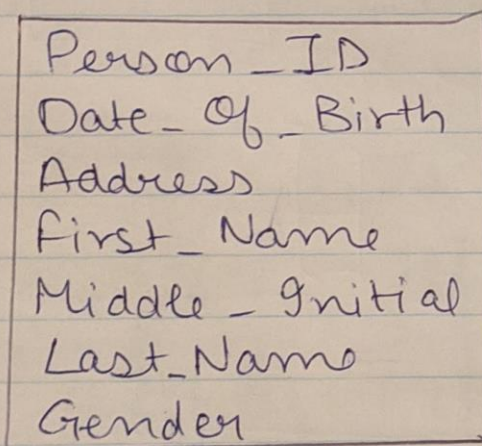 Person_ID
Date_Of_Birth
Address
First_Name
Middle_Initial
Last_Name
Gender